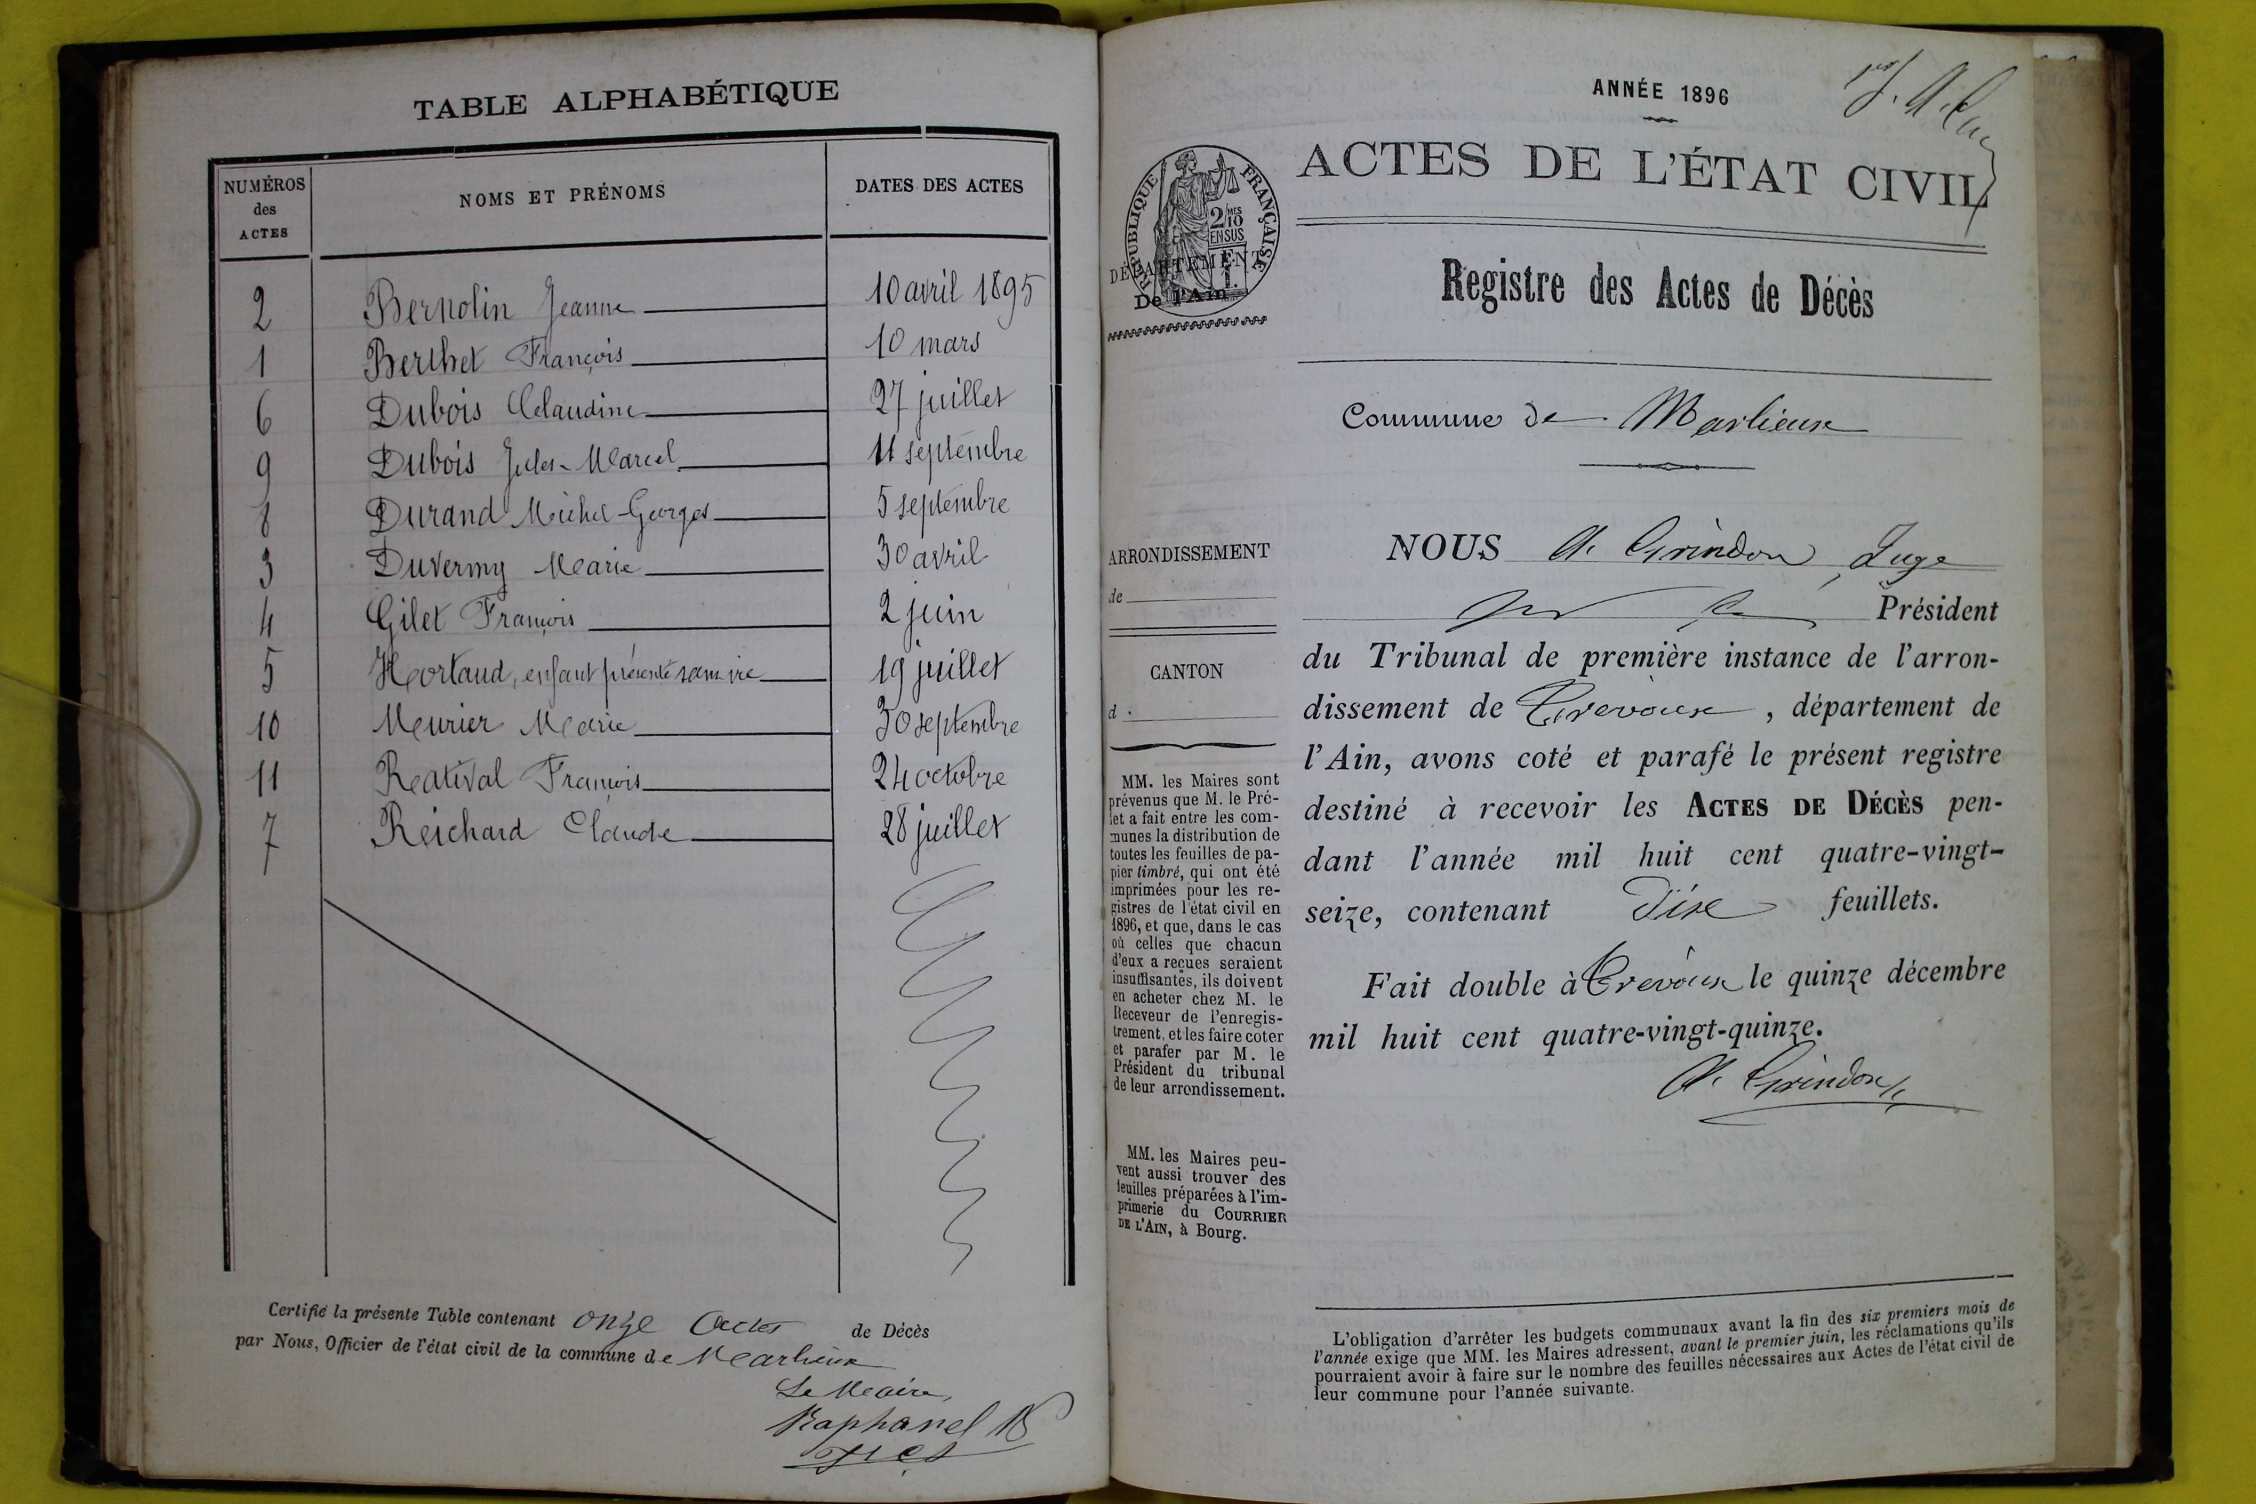 TABLE ALPHABÉTIQUE
NUMÉROS des ACTES
NOMS ET PRÉNOMS
DATES DES ACTES
2 Bernolin Jeanne 10 avril 1895
1 Berthet François 10 mars
6 Dubois Claudine 27 juillet
9 Dubois Jules-Marcel 11 septembre
8 Durand Michel-Georges 5 septembre
3 Duvermy Marie 30 avril
4 Gilet François 2 juin
5 Hortaud, enfant présenté sans vie 19 juillet
10 Meurier Marie 30 septembre
11 Reatival François 24 octobre
7 Reichard Claude 28 juillet
Certifié la présente Table contenant onze actes de Décès
par Nous, Officier de l'état civil de la commune de Marlieux
Le Maire,
Raphanel
ANNÉE 1896
ACTES DE L'ÉTAT CIVIL
RÉPUBLIQUE FRANÇAISE
2/10 MES
EN SUS
1 F.
DÉPARTEMENT
De l'Ain
Registre des Actes de Décès
Commune de Marlieux
ARRONDISSEMENT
de
CANTON
d
MM. les Maires sont
prévenus que M. le Pré-
fet a fait entre les com-
munes la distribution de
toutes les feuilles de pa-
pier timbré, qui ont été
imprimées pour les re-
gistres de l'état civil en
1896, et que, dans le cas
où celles que chacun
d'eux a reçues seraient
insuffisantes, ils doivent
en acheter chez M. le
Receveur de l'enregis-
trement, et les faire coter
et parafer par M. le
Président du tribunal
de leur arrondissement.
MM. les Maires peu-
vent aussi trouver des
feuilles préparées à l'im-
primerie du COURRIER
DE L'AIN, à Bourg.
NOUS A. Grindon, Juge
Président
du Tribunal de première instance de l'arron-
dissement de Trévoux, département de
l'Ain, avons coté et parafé le présent registre
destiné à recevoir les ACTES DE DÉCÈS pen-
dant l'année mil huit cent quatre-vingt-
seize, contenant Dix feuillets.
Fait double à Trévoux le quinze décembre
mil huit cent quatre-vingt-quinze.
A. Grindon
L'obligation d'arrêter les budgets communaux avant la fin des six premiers mois de
l'année exige que MM. les Maires adressent, avant le premier juin, les réclamations qu'ils
pourraient avoir à faire sur le nombre des feuilles nécessaires aux Actes de l'état civil de
leur commune pour l'année suivante.